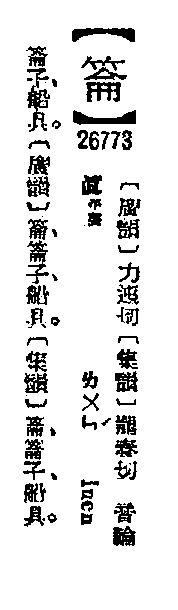 【䈁】
26773
〔廣韻〕力迍切〔集韻〕龍春切 音論
眞平聲 ㄌㄨㄣˊ luen
䈁子、船具。〔廣韻〕䈁、䈁子、船具。〔集韻〕䈁、䈁子、船具。